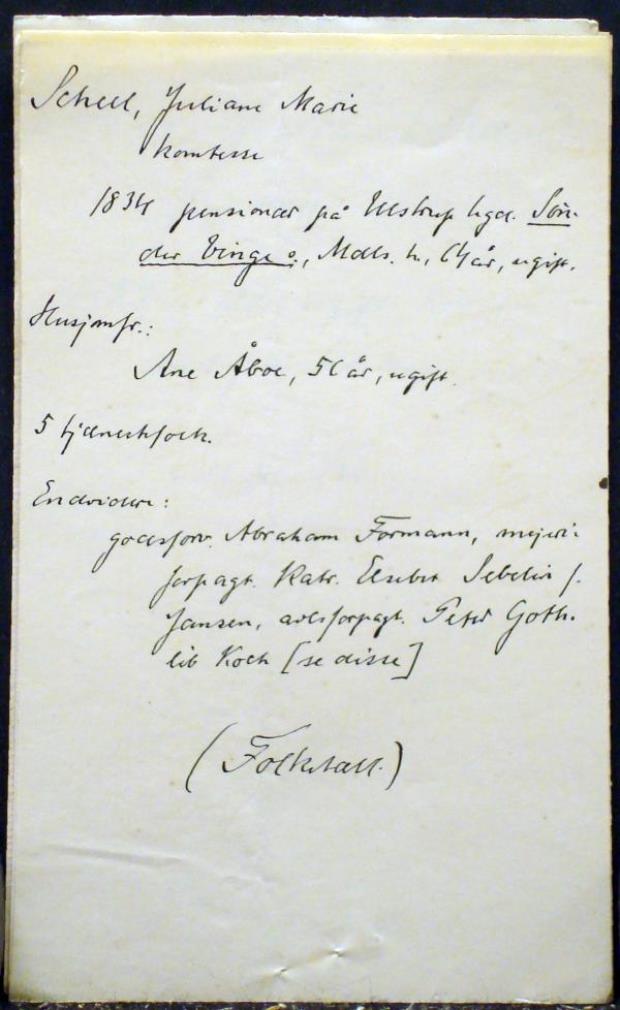 Scheel, Juliane Marie
komtesse
1834 pensionær på Ulstrup hgd. Søn-
der Vinge s., Mdls. h., 61 år, ugift.
Husjomfr.:
Ane Åboe, 56 år, ugift.
5 tjenestefolk.
Endvidere:
godsforv. Abraham Formann, mejeri-
forpagt. Katr. Elsebet Sebelin f.
Jansen, avlsforpagt. Peter Goth-
lib Koch [se disse]
(Folketæll.)